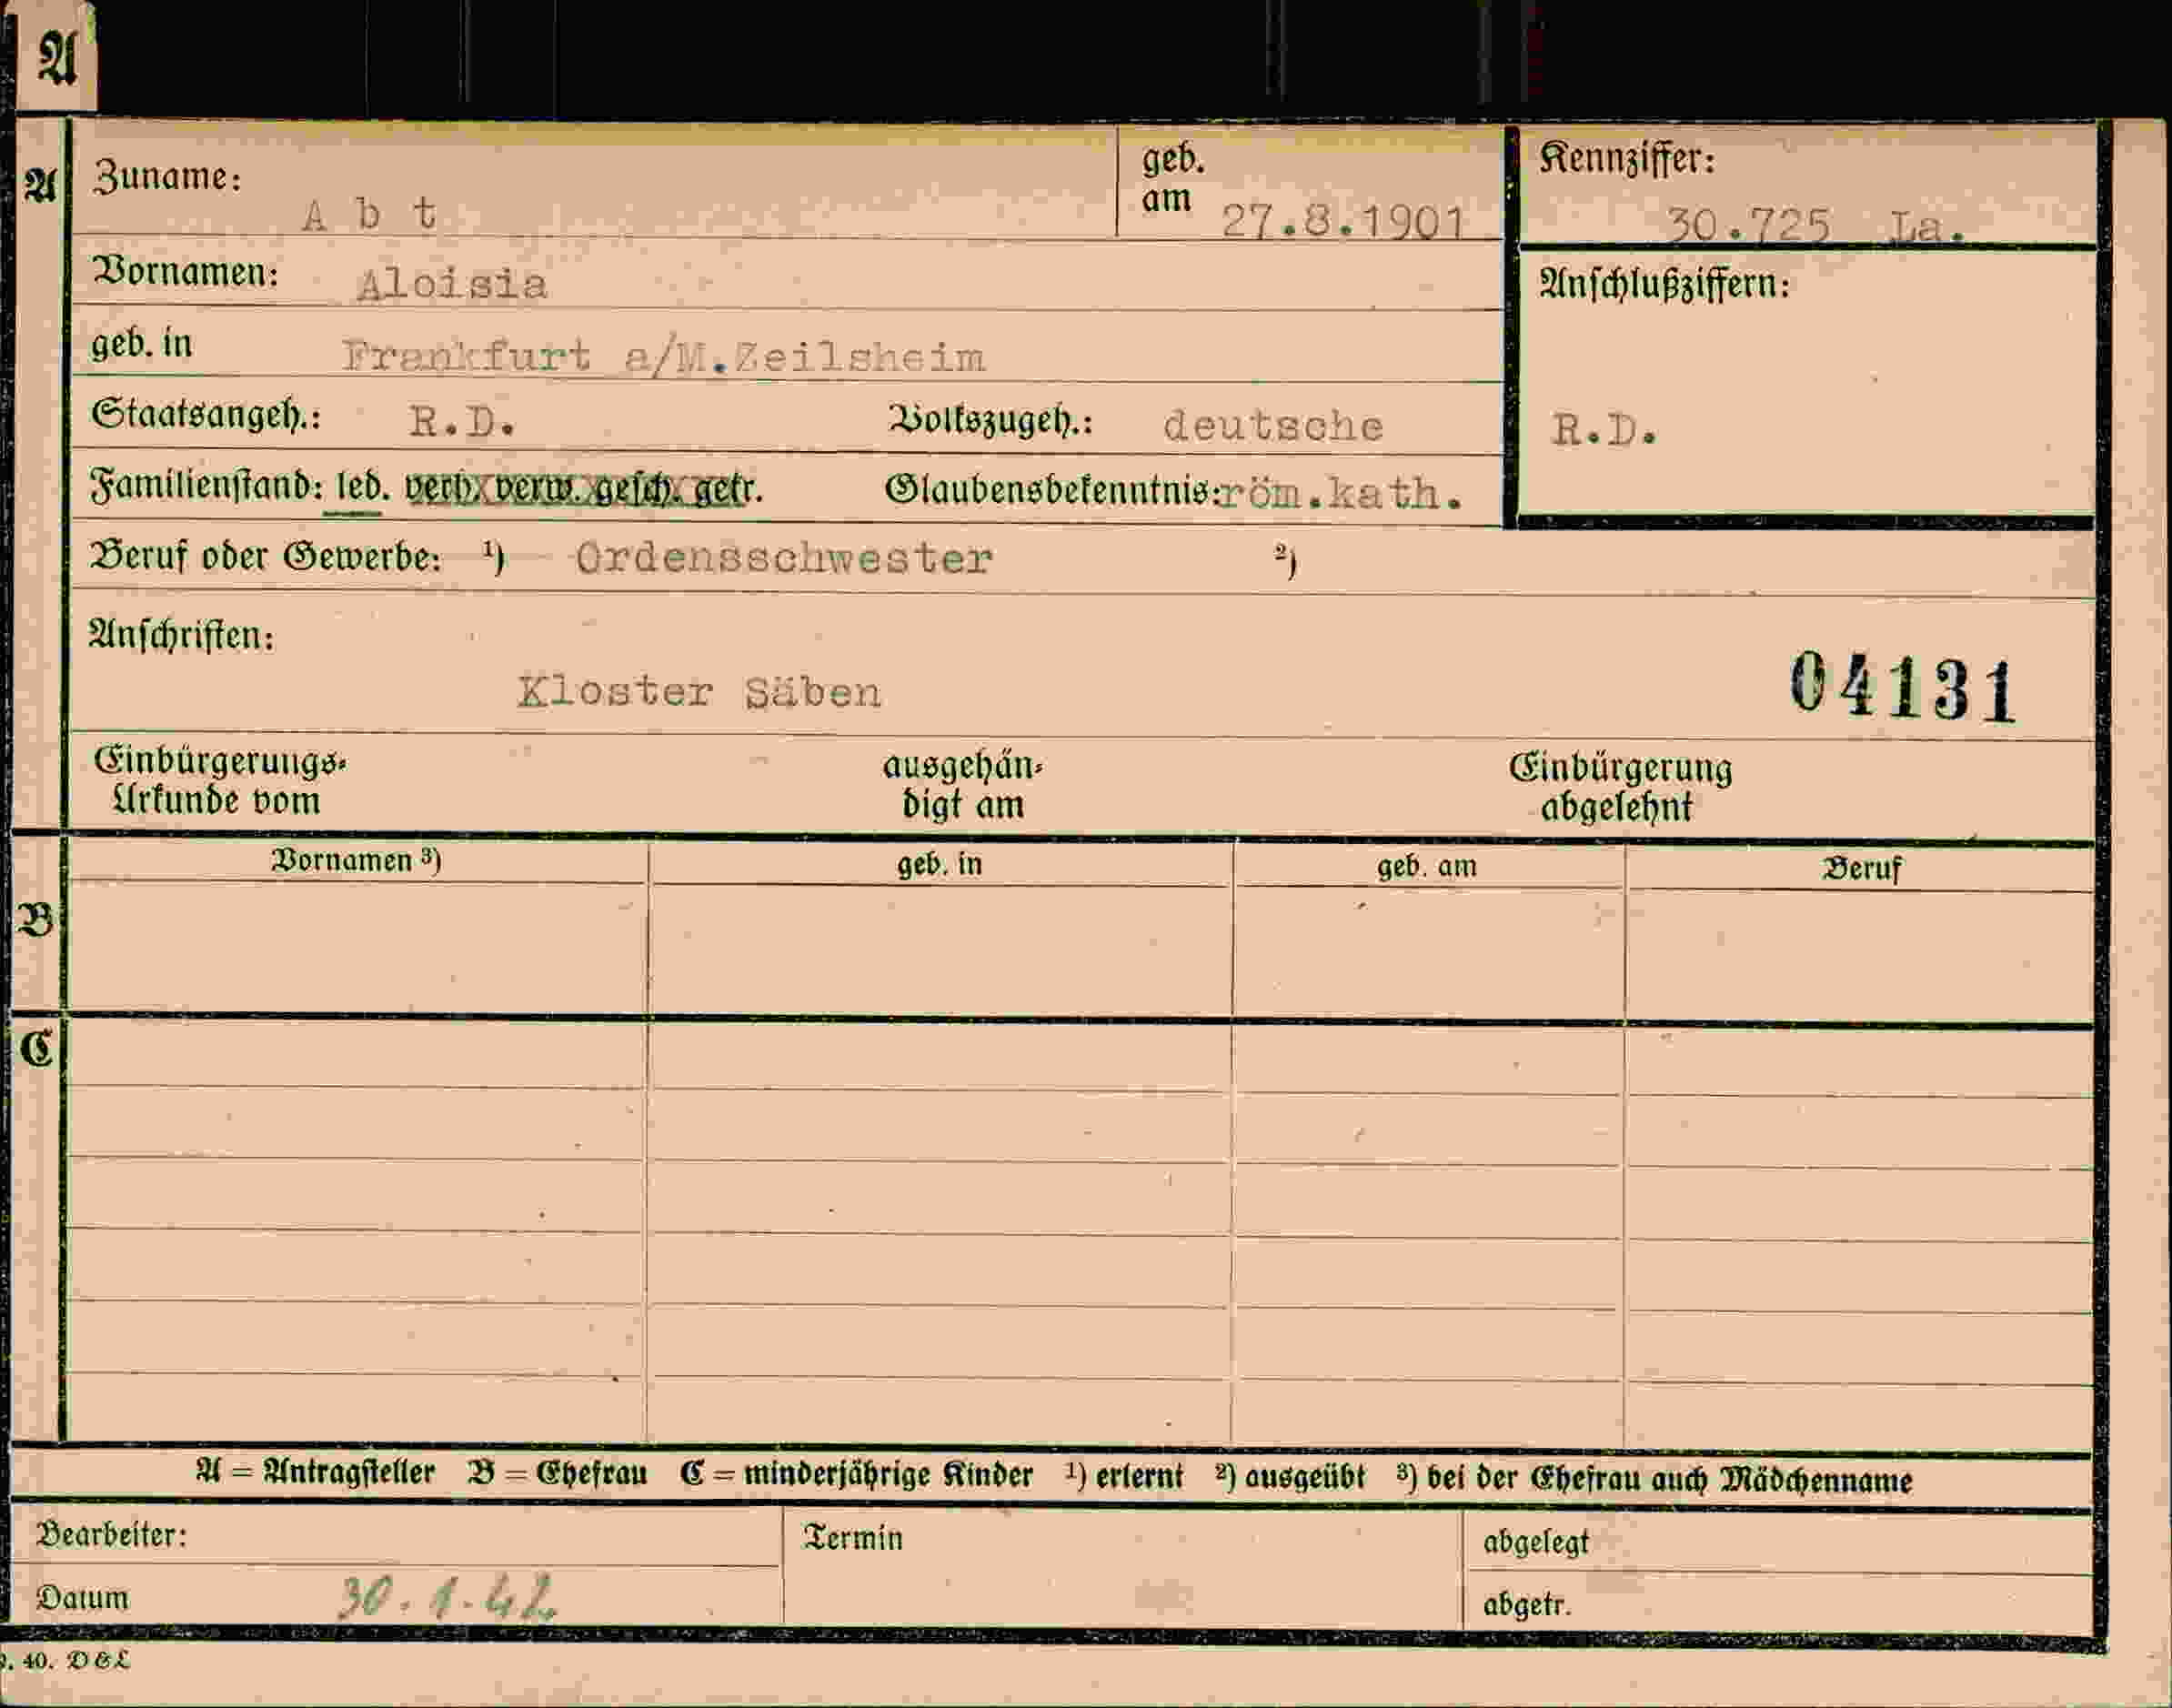 A
A
Zuname: A b t
geb. am 27.8.1901
Kennziffer: 30.725 La.
Vornamen: Aloisia
Anschlußziffern:
geb. in Frankfurt a/M.Zeilsheim
Staatsangeh.: R.D. Volkszugeh.: deutsche
R.D.
Familienstand: led. verh. verw. gesch. getr. Glaubensbekenntnis: röm.kath.
Beruf oder Gewerbe: ¹) Ordensschwester ²)
Anschriften:
Kloster Säben
04131
Einbürgerungs-
Urkunde vom
ausgehän-
digt am
Einbürgerung
abgelehnt
Vornamen ³) geb. in geb. am Beruf
B
C
A = Antragsteller B = Ehefrau C = minderjährige Kinder ¹) erlernt ²) ausgeübt ³) bei der Ehefrau auch Mädchenname
Bearbeiter:
Termin
abgelegt
Datum 30.1.42
abgetr.
40. D&L